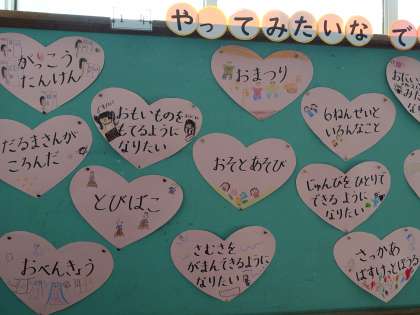 やってみたいな で
がっこう
たんけん
おもいものを
もてるように
なりたい
おまつり
6ねんせいと
いろんなこと
だるまさんが
ころんだ
とびばこ
おそとあそび
じゅんびを ひとりで
できる ように
なりたい
おべんきょう
さむさを
がまんできるように
なりたい
さっかあ
ばすけっとぼうる